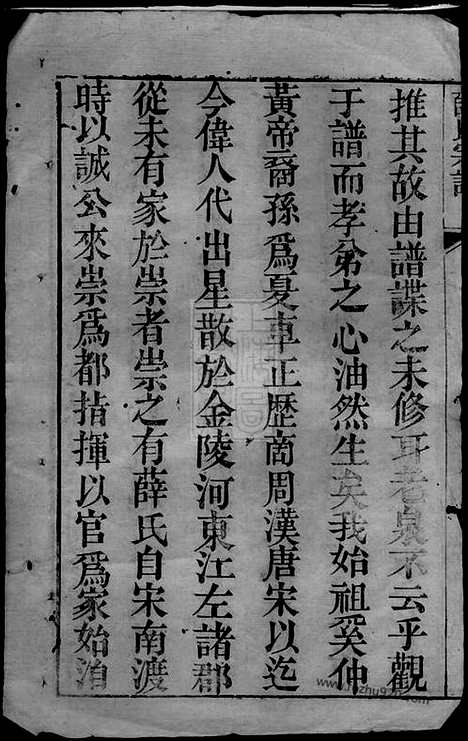 推其故由譜諜之未修耳老泉不云乎觀
于譜而孝弟之心油然生矣我始祖奚仲
黃帝裔孫爲夏車正歷商周漢唐宋以迄
今偉人代出星散於金陵河東江左諸郡
從未有家於崇者崇之有薛氏自宋南渡
時以誠公來崇爲都指揮以官爲家始洎